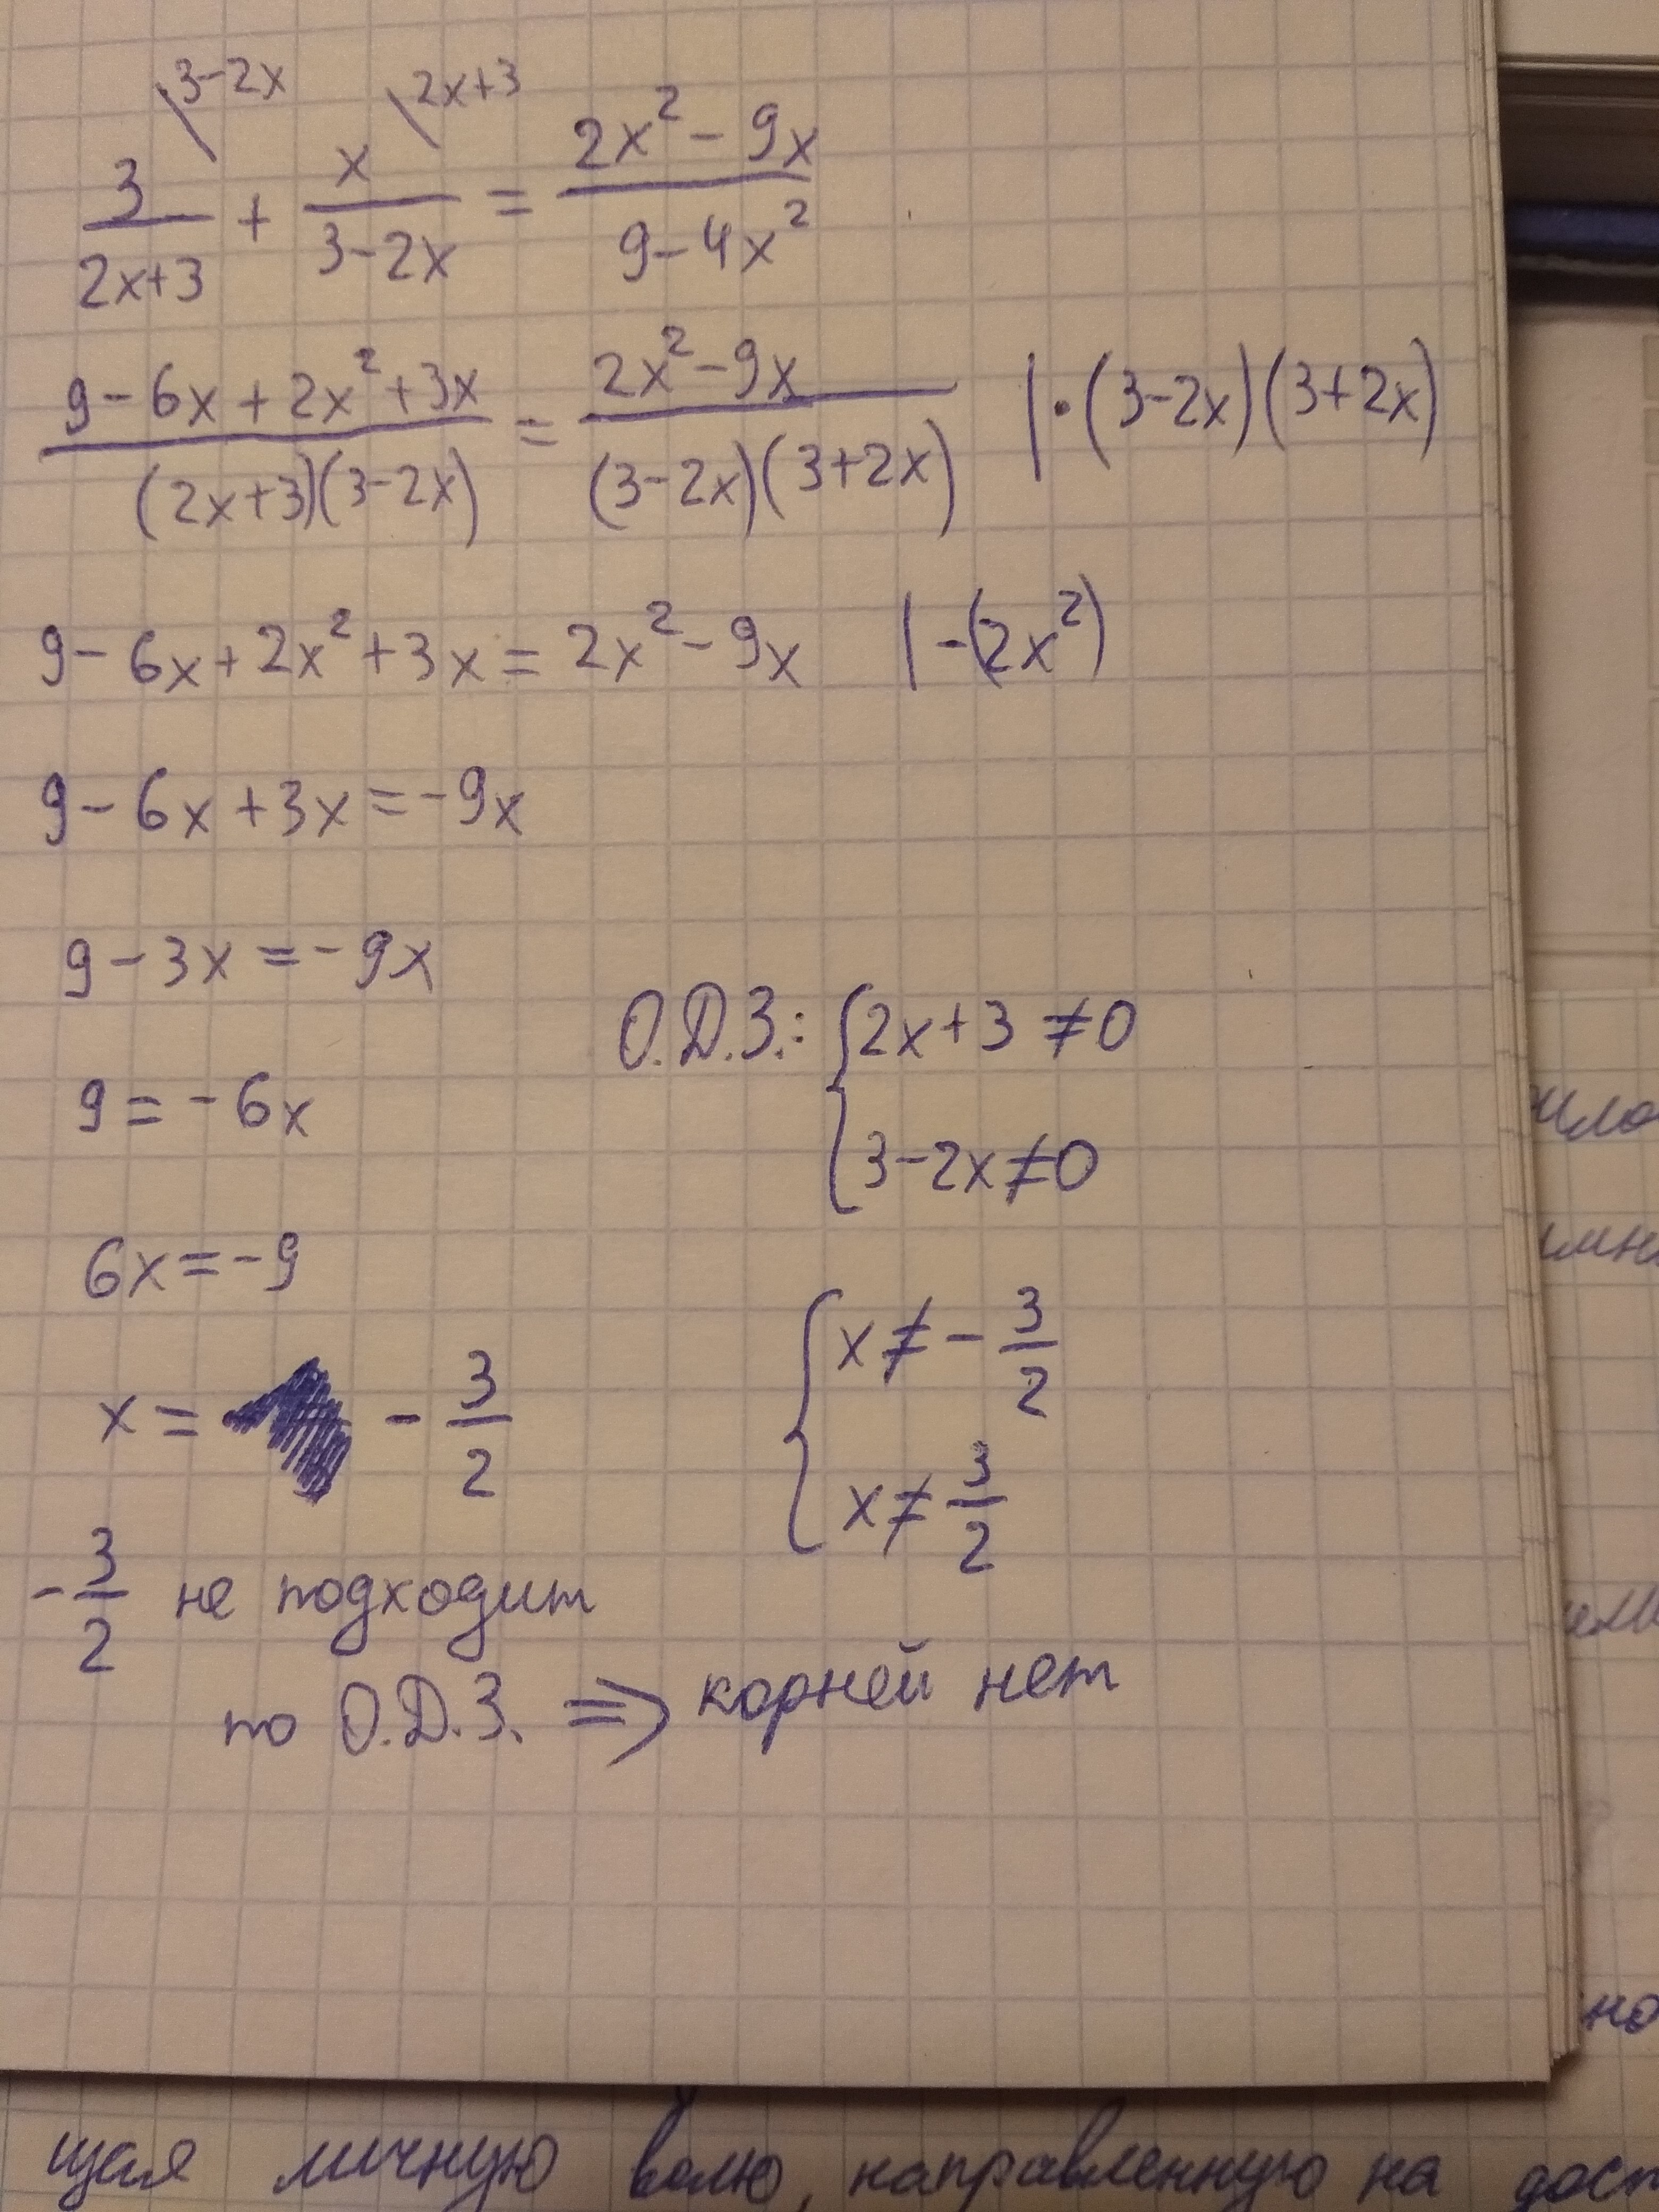 \3-2x \2x+3
3/(2x+3) + x/(3-2x) = (2x² - 9x)/(9-4x²)
(9-6x+2x²+3x)/((2x+3)(3-2x)) = (2x²-9x)/((3-2x)(3+2x)) | · (3-2x)(3+2x)
9-6x+2x²+3x = 2x²-9x | -(2x²)
9-6x+3x = -9x
9-3x = -9x
О.Д.З.: { 2x+3 ≠ 0
3-2x ≠ 0
9 = -6x
6x = -9
{ x ≠ -3/2
x ≠ 3/2
x = -3/2
-3/2 не подходит
по О.Д.З. ⇒ корней нет
но
щая личную волю, направленную на дост